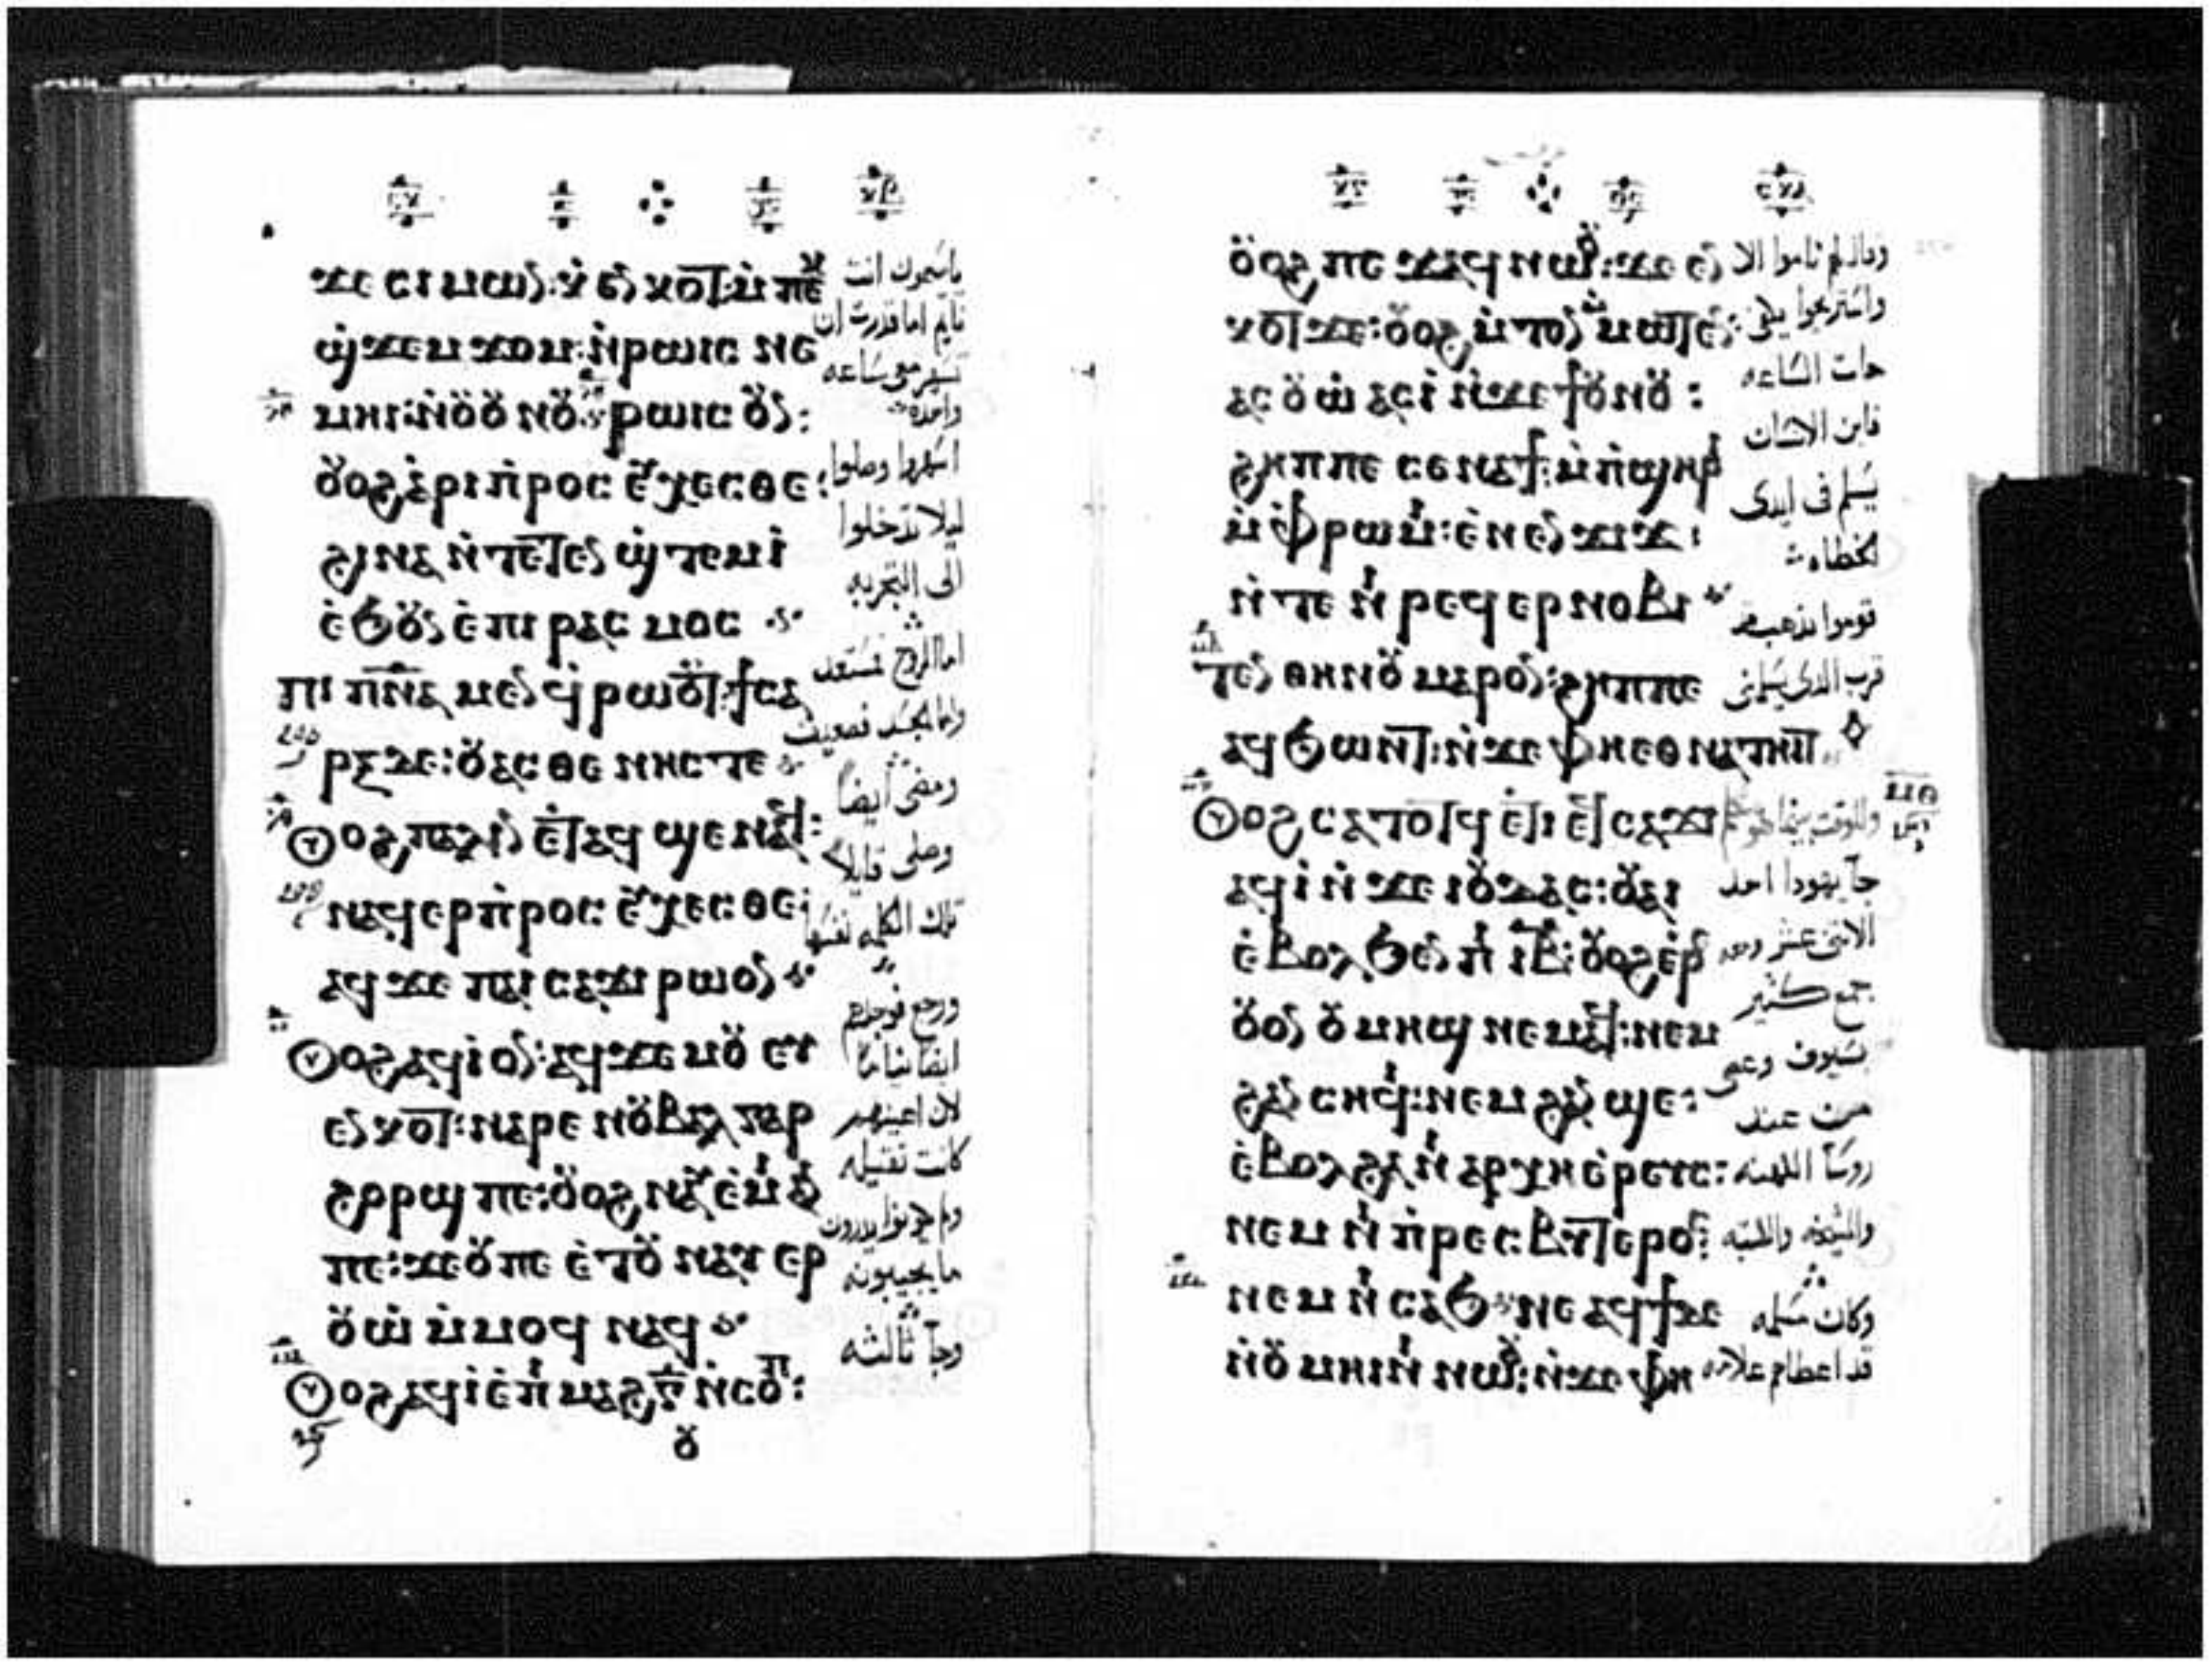 ϫⲉ ⲥⲓⲙⲱⲛ: ⲭ̇ⲉⲛⲕⲟⲧ: ⲙ̇ⲡⲉⲕ
ϣ̇ϫⲉⲙϫⲟⲙ: ⲛ̇ⲣⲱⲓⲥ ⲛⲉ
ⲙⲏⲓ: ⲛ̇ⲟⲩⲟⲩⲛⲟⲩ ⲣⲱⲓⲥ ⲟⲩⲛ:
ⲟⲩⲟϩ ⲁ̇ⲣⲓⲡ̇ⲣⲟⲥⲉⲩⲭⲉⲥⲑⲉ:
ϩⲓⲛⲁ ⲛ̇ⲧⲉⲧⲉⲛϣ̇ⲧⲉⲙⲓ̇
ⲉ̇ϧⲟⲩⲛ ⲉ̇ⲡⲓⲣⲁⲥⲙⲟⲥ
ⲡⲓ ⲡⲛⲁ ⲙⲉⲛ ϥ̇ⲣⲱⲟⲩⲧ: ϯⲥⲁ
ⲣⲝ ⲇⲉ: ⲟⲩⲁⲥⲑⲉⲛⲏⲥ ⲧⲉ
ⲟⲩⲟϩ ⲡⲁⲗⲓⲛ ⲉ̇ⲧⲁϥϣⲉⲛⲁϥ:
ⲛⲁϥⲉⲣⲡ̇ⲣⲟⲥⲉⲩⲭⲉⲥⲑⲉ:
ⲁϥϫⲉ ⲡⲁⲓ ⲥⲁϫⲓ ⲣⲱ ⲟⲛ
ⲟⲩⲟϩ ⲁϥⲓ̇ ⲟⲛ: ⲁϥϫⲉⲙⲟⲩ ⲉⲩ
ⲉⲛⲕⲟⲧ: ⲛⲁⲣⲉ ⲛⲟⲩⲃⲁⲗ ⲅⲁⲣ
ϩⲟⲣϣ ⲡⲉ: ⲟⲩⲟϩ ⲛⲁⲩⲉ̇ⲙⲓ ⲁⲛ
ⲡⲉ: ϫⲉ ⲟⲩ ⲡⲉ ⲉ̇ⲧⲟⲩⲛⲁⲉⲣ
ⲟⲩⲱ̇ ⲙ̇ⲙⲟϥ ⲛⲁϥ
ⲟⲩⲟϩ ⲁϥⲓ̇ ⲉ̇ⲡ̇ⲙⲁϩⲅ̅ ⲛ̇ⲥⲟⲡ:
ⲟⲩ
يا سمعون انت
نايم اما قدرت ان
تسهر معي ساعه
واحده
اسهروا وصلوا
ليلا تدخلوا
الى التجربه
اما الروح فمستعد
واما الجسد فضعيف
ومضى ايضاً
وصلى قايلاً
تلك الكلمه نفسها
ورجع فوجدهم
ايضا نياماً
لان اعينهم
كانت ثقيله
ولم يكونوا يدرون
ما يجيبونه
وجآ ثالثه
ⲟⲩⲟϩ ⲡⲉϫⲁϥ ⲛⲱⲟⲩ: ϫⲉ ⲉⲛ
ⲕⲟⲧ ϫⲉ: ⲟⲩⲟϩ ⲙ̇ⲧⲟⲛ ⲙⲙⲱⲧⲉⲛ:
ⲁⲥⲟⲩⲱ̇ ⲁⲥⲓ̇ ⲛ̇ϫⲉ ϯⲟⲩⲛⲟⲩ:
ϩⲏⲡⲡⲉ ⲥⲉⲛⲁϯ: ⲙ̇ⲡ̇ϣⲏⲣⲓ
ⲙ̇ⲫ̇ⲣⲱⲙⲓ: ⲉ̇ⲛⲉⲛϫⲓϫ:
ⲛ̇ⲧⲉ ⲛⲓⲣⲉϥⲉⲣⲛⲟⲃⲓ
ⲧⲉⲛ ⲑⲏⲛⲟⲩ ⲙⲁⲣⲟⲛ: ϩⲏⲡⲡⲉ
ⲁϥϧⲱⲛⲧ: ⲛ̇ϫⲉ ⲫⲏⲉⲑⲛⲁⲧⲏⲓⲧ
ⲟⲩⲟϩ ⲥⲁⲧⲟⲧϥ ⲉ̇ⲧⲓ ⲉϥⲥⲁϫⲓ
ⲁϥⲓ̇ ⲛ̇ϫⲉ ⲓⲟⲩⲇⲁⲥ: ⲟⲩⲁⲓ
ⲉ̇ⲃⲟⲗϧⲉⲛ ⲡⲓ ⲓⲃ̅: ⲟⲩⲟϩ ⲉ̇ⲣⲉ
ⲟⲩⲟⲛ ⲟⲩⲙⲏϣ ⲛⲉⲙⲁϥ: ⲛⲉⲙ
ϩⲁⲛⲥⲏϥⲓ: ⲛⲉⲙ ϩⲁⲛϣⲉ:
ⲉ̇ⲃⲟⲗϩⲁ ⲛⲓⲁⲣⲭⲏⲉ̇ⲣⲉⲩⲥ:
ⲛⲉⲙ ⲛⲓⲡ̇ⲣⲉⲥⲃⲩⲧⲉⲣⲟⲥ:
ⲛⲉⲙ ⲛⲓⲥⲁϧ ⲛⲉ ⲁϥϯ ⲇⲉ
ⲛ̇ⲟⲩⲙⲏⲓⲛⲓ ⲛⲱⲟⲩ: ⲛ̇ϫⲉ ⲫⲏ
وقال لهم ناموا الان
واستريحوا
جات الساعه
فابن الانسان
يسلم في ايدى
الخطاه
قوموا نذهب
قرب الذى يسلمني
وللوقت بينما هو يتكلم
جآ يهودا احد
الاثنى عشر ومعه
جمع كثير
بسيوف وعصي
من عند
روسآ الكهنه
والشيوخ والكتبه
وكان مسلمه
قد اعطاهم علامه